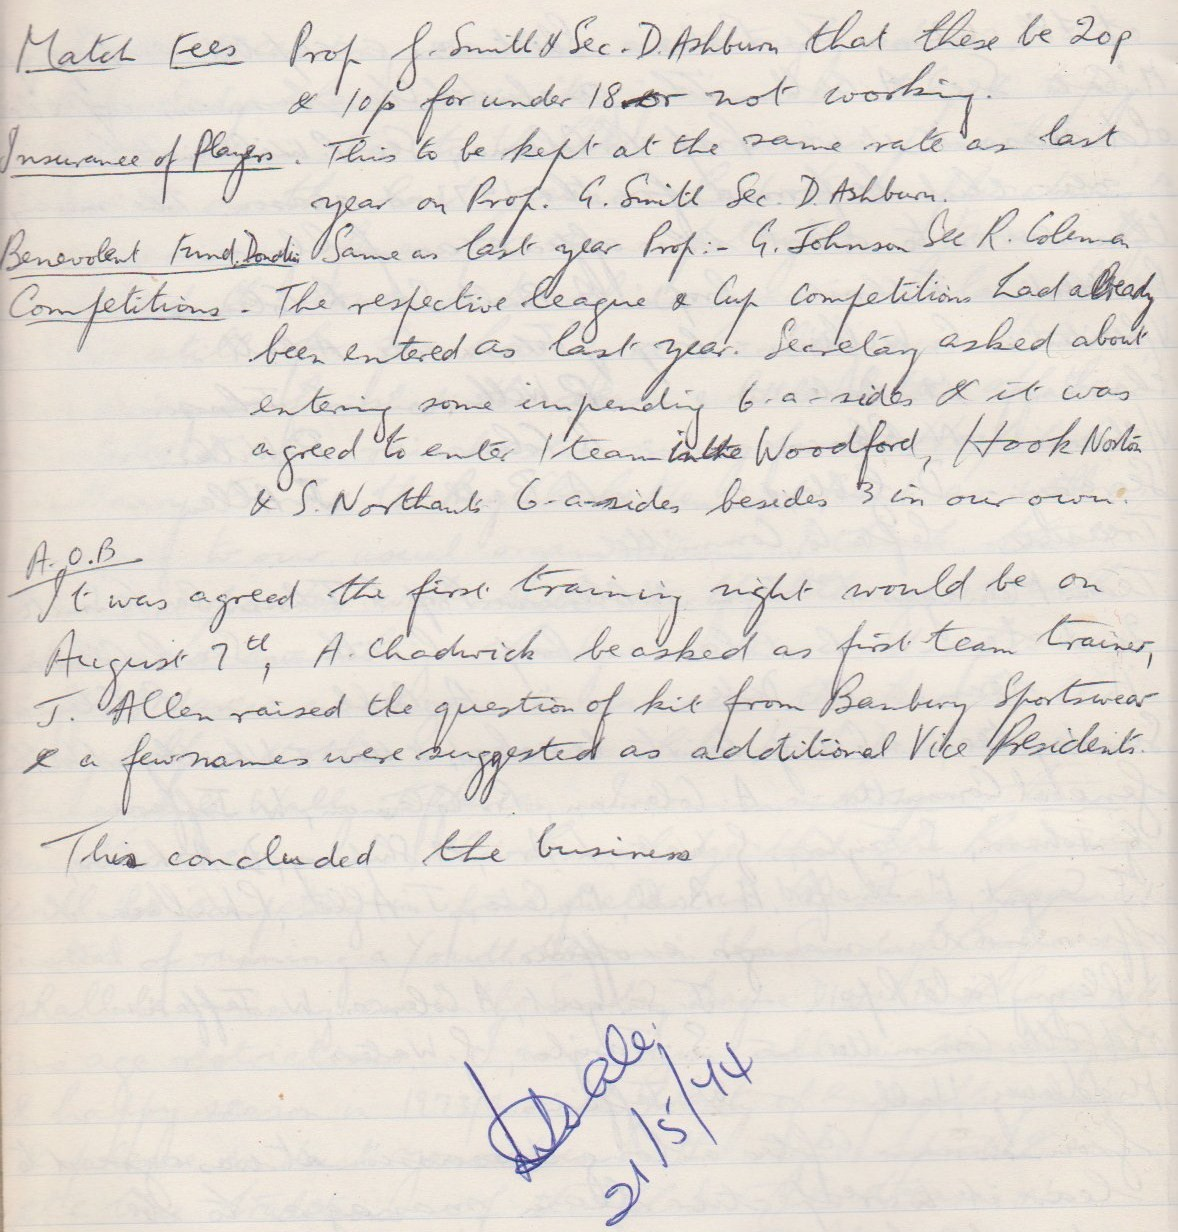 Match Fees Prop G. Smith & Sec. D. Ashburn that these be 20p
& 10p for under 18 or not working.
Insurance of Players. This to be kept at the same rate as last
year on Prop. G. Smith Sec. D. Ashburn.
Benevolent Fund. Same as last year Prop:- G. Johnson Sec R. Coleman
Competitions - The respective league & Cup competitions had already
been entered as last year. Secretary asked about
entering some impending 6-a-sides & it was
agreed to enter 1 team in the Woodford, Hook Norton
& S. Northants 6-a-sides besides 3 in our own.
A.O.B
It was agreed the first training night would be on
August 7th, A. Chadwick be asked as first team trainer,
J. Allen raised the question of kit from Banbury Sportswear
& a few names were suggested as additional Vice Presidents.
This concluded the business
21/5/74